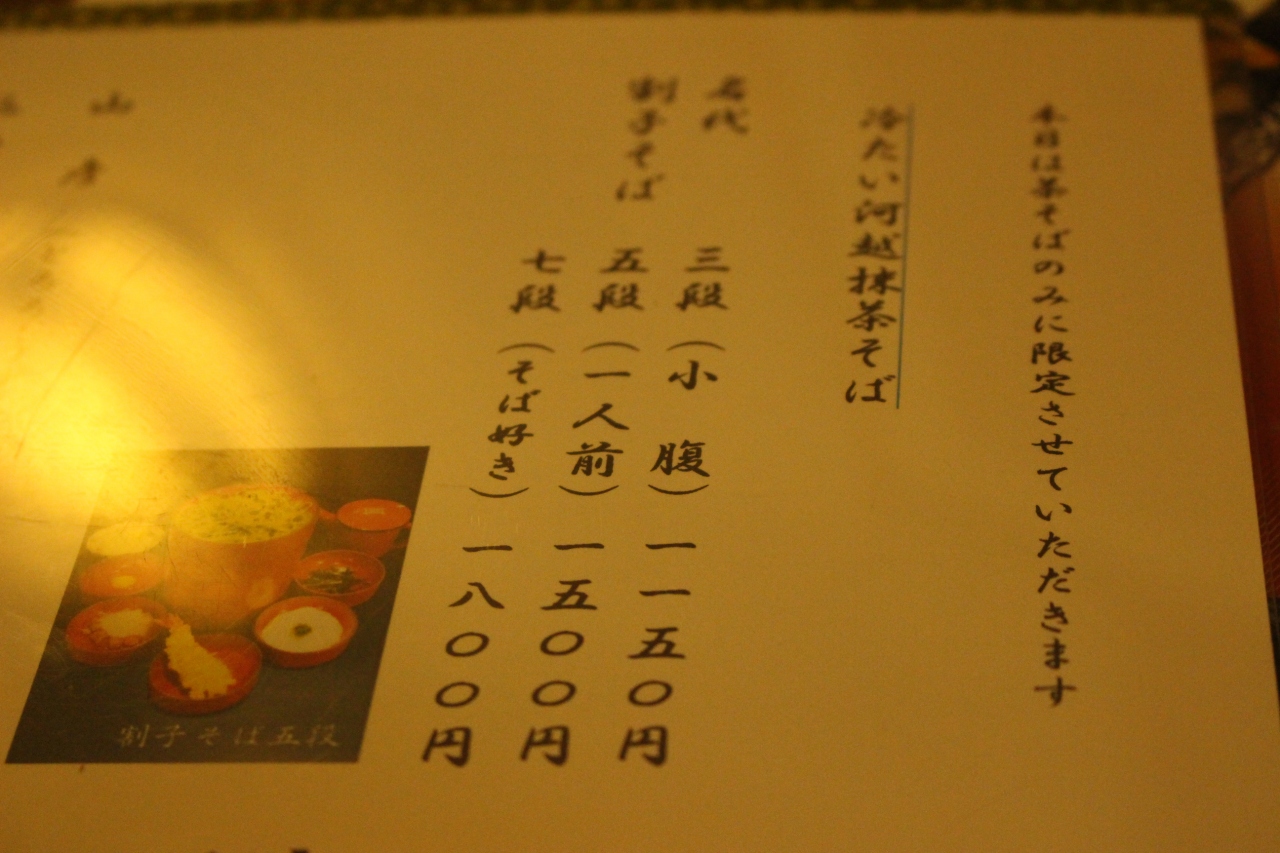 本日は茶そばのみに限定させていただきます
冷たい河越抹茶そば
名代
割子そば
三段（小 腹）一一五〇円
五段（一人前）一五〇〇円
七段（そば好き）一八〇〇円
割子そば五段
山